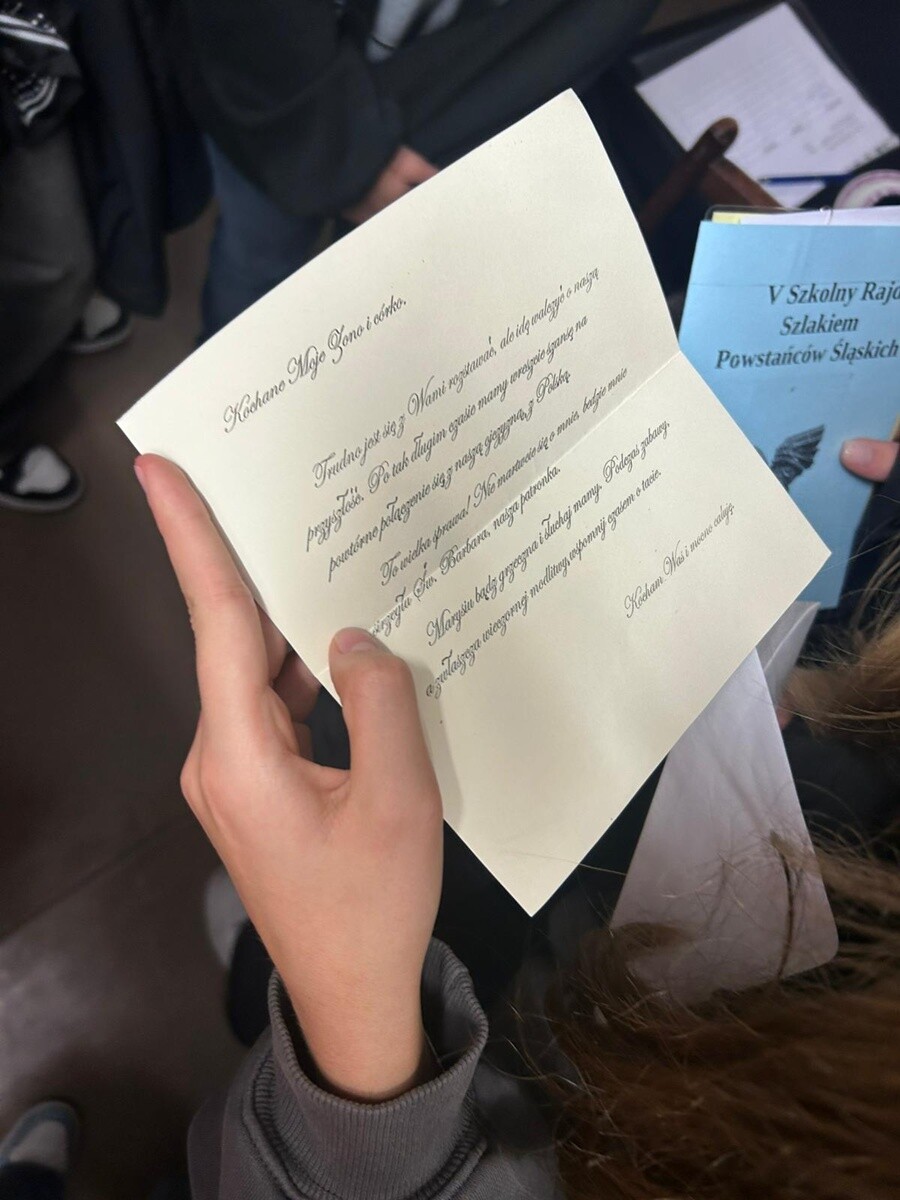 Kochane Moje Żono i córko.
Trudno jest się z Wami rozstawać, ale idę walczyć o naszą
przyszłość. Po tak długim czasie mamy wreszcie szansę na
powtórne połączenie się z naszą ojczyzną, z Polską.
To wielka sprawa! Nie martwcie się o mnie, będzie mnie
strzegła Św. Barbara, nasza patronka.
Marysiu bądź grzeczna i słuchaj mamy. Podczas zabawy,
a zwłaszcza wieczornej modlitwy, wspomnij czasem o tacie.
Kocham Was i mocno całuję.
V Szkolny Rajd
Szlakiem
Powstańców Śląskich